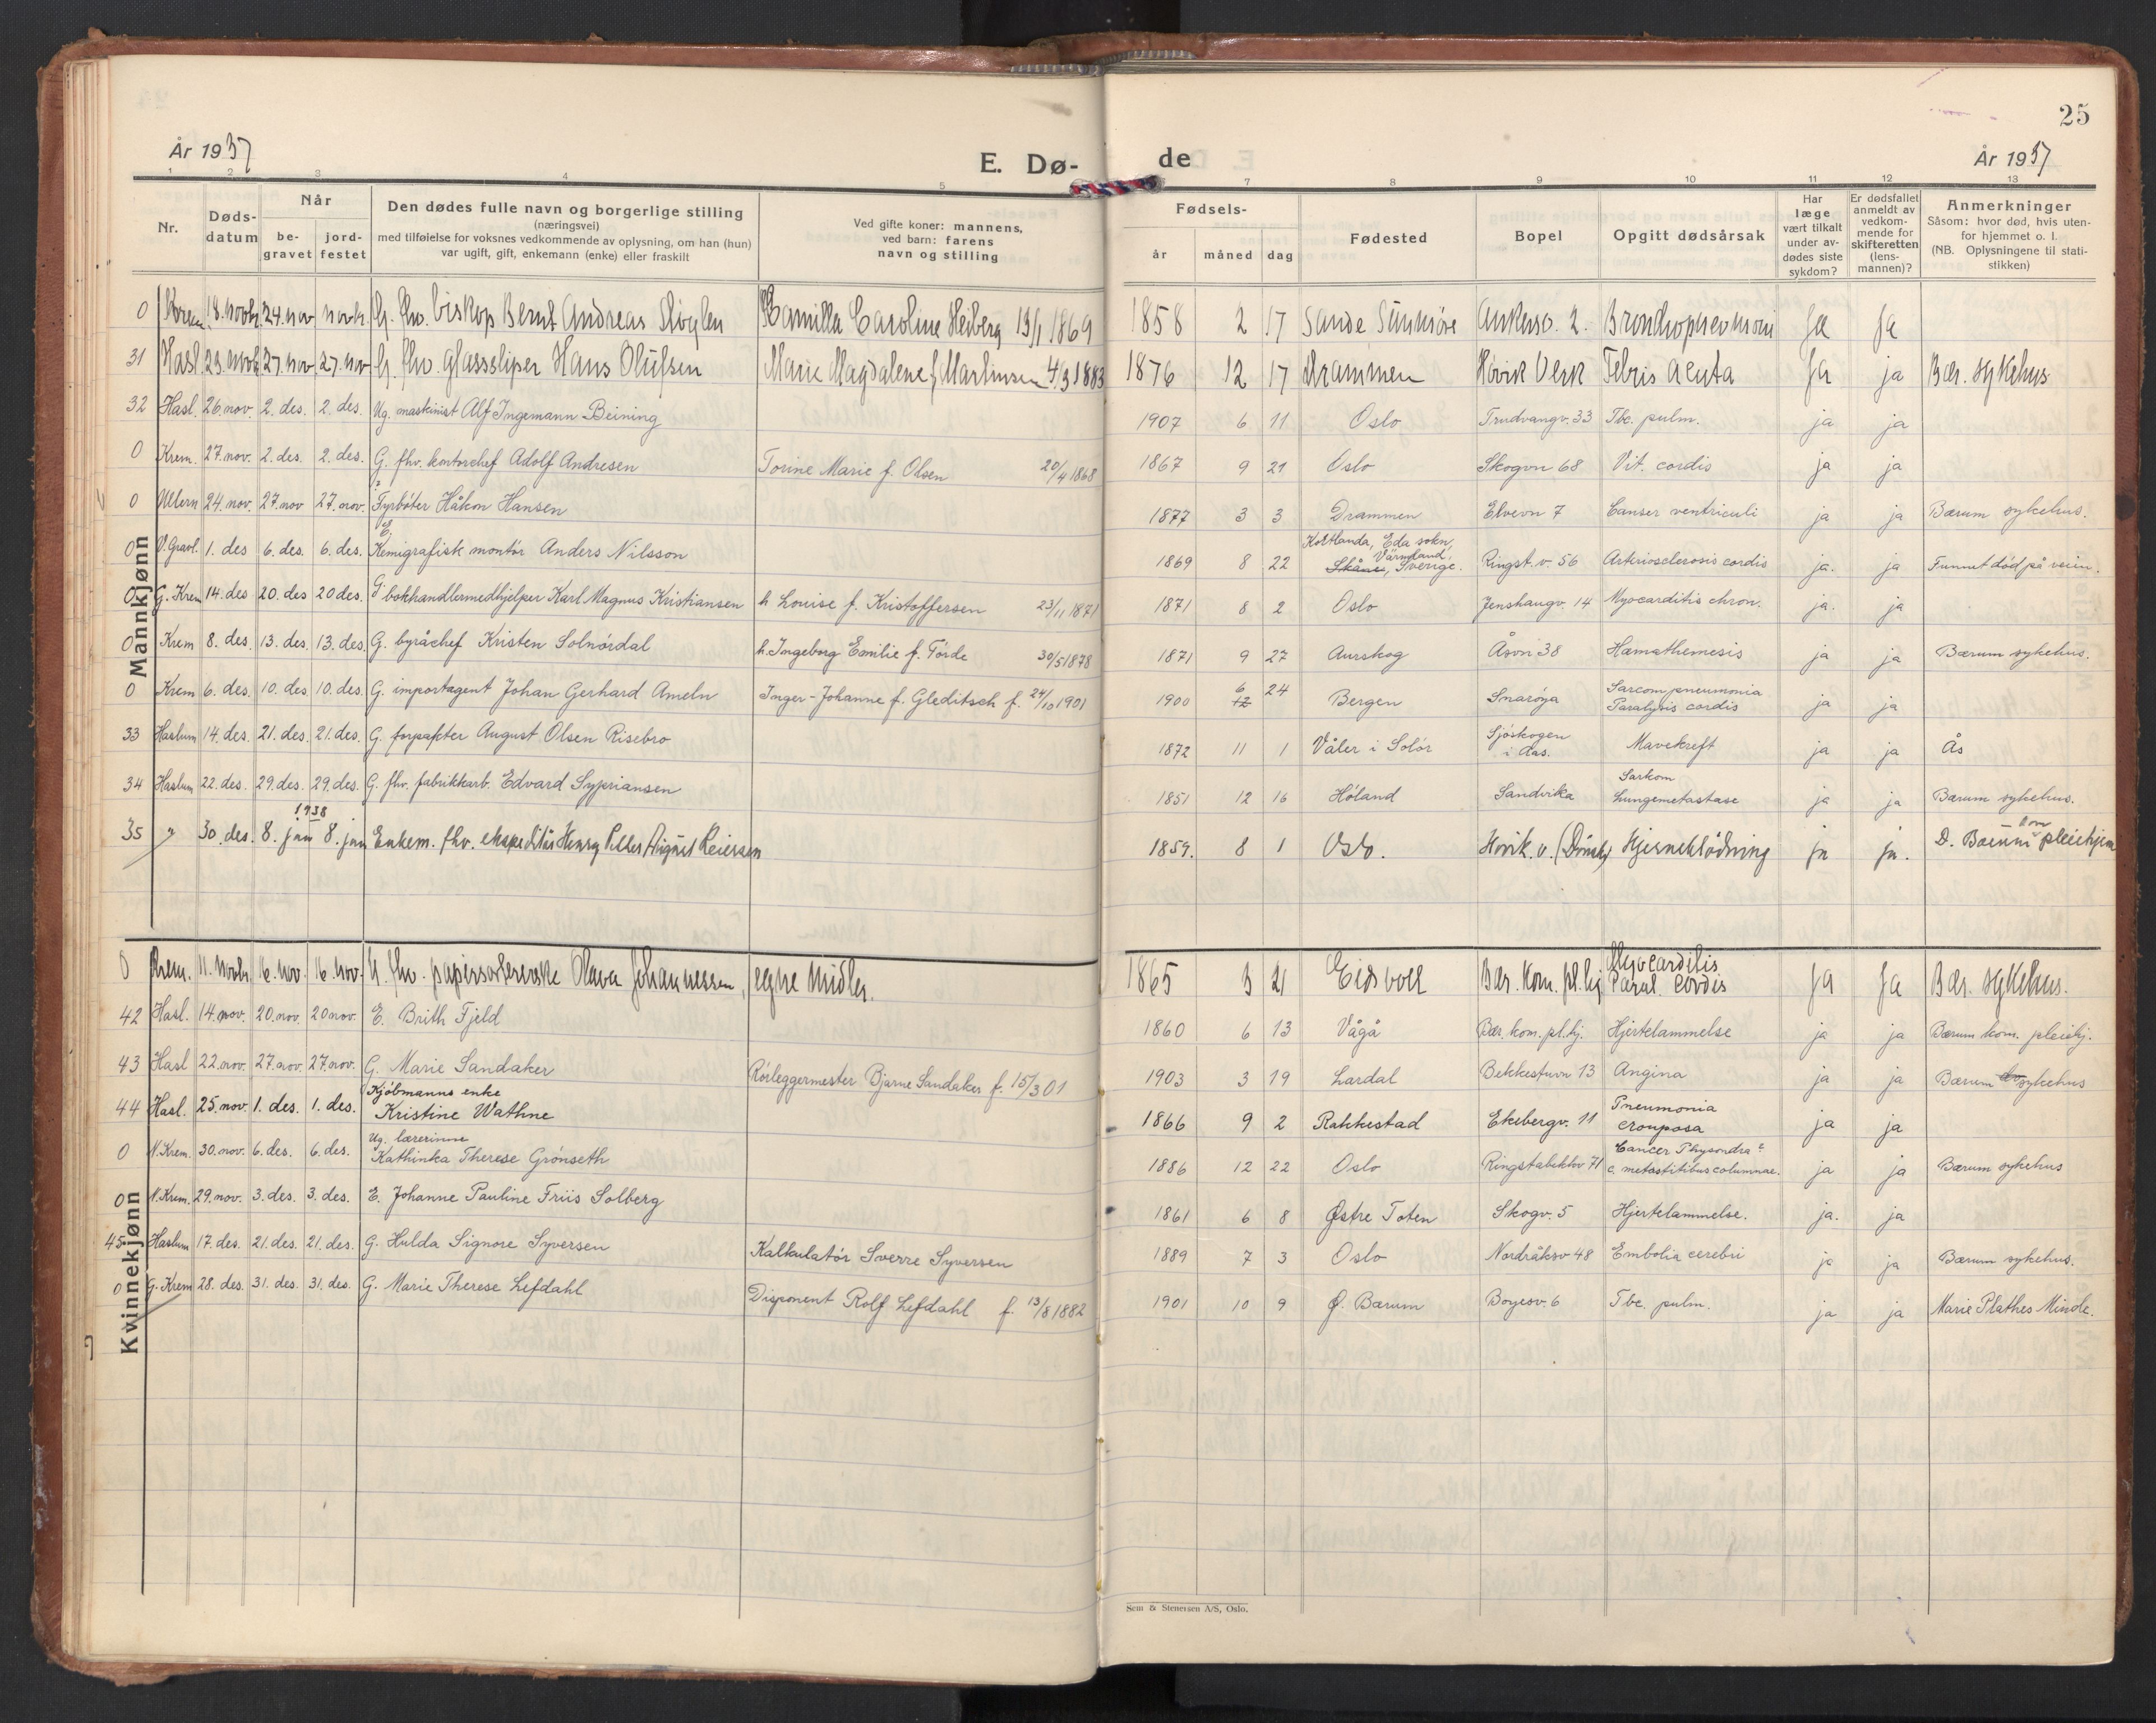 25
År 1937
E. Dø-
de
År 1937
1 2 3 4 5 7 8 9 10 11 12 13
Nr.
Døds-
datum
Når
be-
gravet
jord-
festet
Den dødes fulle navn og borgerlige stilling
(næringsvei)
med tilføielse for voksnes vedkommende av oplysning, om han (hun)
var ugift, gift, enkemann (enke) eller fraskilt
Ved gifte koner: mannens,
ved barn: farens
navn og stilling
Fødsels-
år
måned
dag
Fødested
Bopel
Opgitt dødsårsak
Har
læge
vært tilkalt
under av-
dødes siste
sykdom?
Er dødsfallet
anmeldt av
vedkom-
mende for
skifteretten
(lens-
mannen)?
Anmerkninger
Såsom: hvor død, hvis uten-
for hjemmet o. l.
(NB. Oplysningene til stati-
stikken)
Mannkjønn
0 Krem. 18. novbr. 24. nov novbr. G. fhv. biskop Bernt Andreas Støylen Kamilla Caroline Heiberg 13/1 1869 1858 2 17 Sande Sunmöre Ankerv. 2. Bronchopnevmoni Ja Ja
31 Hasl 23. novb 27. nov 27. nov G. fhv. glassliper Hans Olufsen Marie Magdalene f. Martinsen 4/3 1883 1876 12 17 Drammen Hövik Verk Febris acuta Ja ja Bær. sykehus
32 Hasl. 26. nov. 2. des. 2. des. Ug. maskinist Alf Ingemann Beining 1907 6 11 Oslo Trudvangv. 33 Tbc. pulm. ja ja
0 Krem. 27. nov. 2. des. 2. des. G. fhv. kontorchef Adolf Andresen Torine Marie f. Olsen 20/4 1868 1867 9 21 Oslo Skogvn 68 Vit. cordis ja ja
0 Ullern 24. nov. 27. nov 27. nov. ? Fyrböter Håkon Hansen 1877 3 3 Drammen Elvevn 7 Canser ventriculi ja ja Bærum sykehus.
0 V. Gravl. 1. des 6. des. 6. des. E. Kemigrafisk montör Anders Nilsson 1869 8 22 Eda sokn, Värmland, Skåne, Sverige. Ringst. v. 56 Arteriosclerosis cordis ja. ja Funnet död på veien.
0 G. Krem 14. des 20. des 20 des. G. bokhandlermedhjelper Karl Magnus Kristiansen h. Louise f. Kristoffersen 23/11 1871 1871 8 2 Oslo Jenshaugv. 14 Myocarditis chron. ja. ja
0 Krem 8. des. 13. des. 13. des. G. byråchef Kristen Solnördal h. Ingeborg Emilie f. Förde 30/5 1878 1871 9 27 Aurskog Åsvn 38 Hæmathemesis ja ja Bærum sykehus.
0 Krem 6. des. 10. des 10. des. G. importagent Johan Gerhard Ameln Inger-Johanne f. Gleditsch f. 24/10 1901 1900 6 12 24 Bergen Snaröya Sarcom pneumonia Paralysis cordis ja ja
33 Haslum 14. des. 21. des. 21. des. G. forpakter August Olsen Risebro 1872 11 1 Våler i Solör Sjöskogen i Aas. Mavekreft ja ja Ås
34 Haslum 22. des. 29. des. 29. des. G. fhv. fabrikkarb. Edvard Sypriansen 1851 12 16 Höland Sandvika Sarkom Lungemetastase ja ja Bærum sykehus.
35 " 30. des. 1938 8. jan 8. jan Enkem. fhv. ekspeditör Henry Reiersen 1859. 8 1 Oslo. Hövik. v. Hjerneblödning ja ja. D. Bærum kom pleiehjem
Kvinnekjønn
0 Krem. 11. novbr. 16. nov. 16. nov. U. fhv. papirsorterske Olava Johannessen, egne midler. 1865 3 21 Eidsvoll Bær. kom. pl.hj Myocarditis Paral. cordis Ja Ja Bær. sykehus.
42 Hasl. 14. nov. 20. nov. 20 nov. E. Brith Fjeld 1860 6 13 Vågå Bær. kom. pl. hj. Hjertelammelse ja ja Bærum kom. pleiehj.
43 Hasl 22. nov. 27. nov. 27. nov. G. Marie Sandaker Rörleggermester Bjarne Sandaker f. 15/3 01 1903 3 19 Lardal Bekkestuvn 13 Angina ja ja Bærum sykehus
44 Hasl. 25. nov. 1. des. 1. des. Kjöbmanns enke Kristine Wathne 1866 9 2 Rakkestad Ekebergv. 11 Pneumonia crouposa ja ja
0 N. Krem. 30. nov. 6. des. 6. des. Ug. lærerinne Kathinka Therese Grönseth 1886 12 22 Oslo Ringstabekkv 71 Cancer c. metastitibus columnae. ja ja Bærum sykehus
0 N. Krem. 29. nov. 3. des. 3. des. E. Johanne Pauline Friis Solberg 1861 6 8 Østre Toten Skogv. 5 Hjertelammelse. ja. ja
45 Haslum 17. des. 21. des. 21. des. G. Hulda Signore Syversen Kalkulatör Sverre Syversen 1889 7 3 Oslo Nordråksv 48 Embolia cerebri ja ja Bærum sykehus.
0 G. Krem 28. des. 31. des. 31. des. G. Marie Therese Lefdahl Disponent Rolf Lefdahl f. 13/8 1882 1901 10 9 Ø. Bærum Boyesv. 6 Tbc. pulm. ja ja Marie Plathes Minde.
Sem & Stenersen A/S, Oslo.